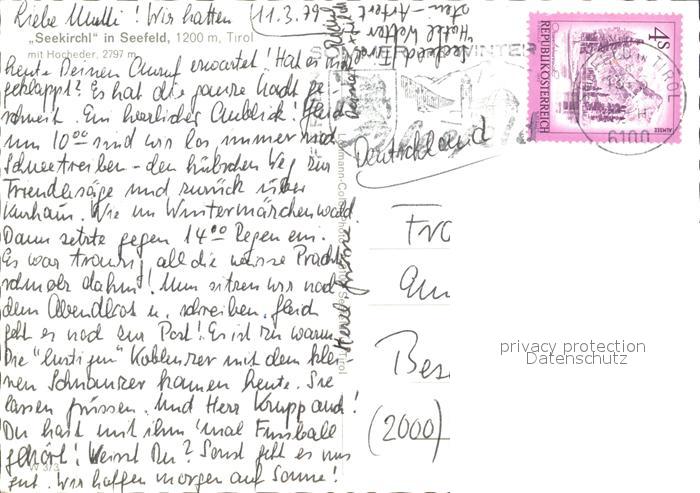 Liebe Mutti! Wir hatten 11.3.79
„Seekirchl“ in Seefeld, 1200 m, Tirol
mit Hocheder, 2797 m
heute Deinen Anruf erwartet! Hat es nicht
geklappt? Es hat die ganze Nacht ge-
schneit. Ein herrlicher Anblick! Gleich
um 10⁰⁰ sind wir los immer noch
Schneetreiben - den hübschen Weg zur
Triendlsäge und zurück über
Kurhaus. Wie im Wintermärchenwald.
Dann setzte gegen 14⁰⁰ Regen ein.
Es war traurig, all die weisse Pracht
schmolz dahin! Nun sitzen wir nach
dem Abendbrot u. schreiben, gleich
geht es noch zur Post! Es ist zu warm.
Die "lustigen" Koblenzer mit dem klei-
nen Schnauzer kamen heute. Sie
lassen grüssen. Und Herr Krupp auch!
Du hast mit ihm 'mal Fussball
gehört! Weisst Du? Sonst geht es uns
gut. Wir hoffen morgen auf Sonne!
W 3/3
Seefeld/Tirol
Hotel Wetter
WINTER
4 S
REPUBLIK ÖSTERREICH
ALMSEE
TIROL
6100
Deutschland
Fro
Am
Bes
(2000)
privacy protection
Datenschutz